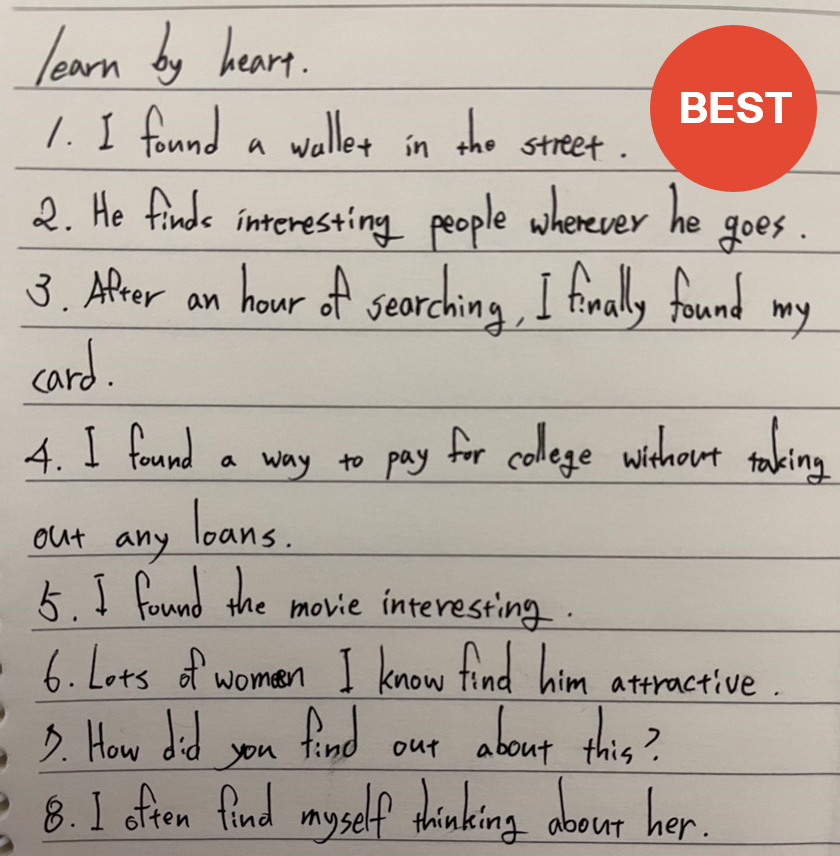 learn by heart.
BEST
1. I found a wallet in the street.
2. He finds interesting people wherever he goes.
3. After an hour of searching, I finally found my
card.
4. I found a way to pay for college without taking
out any loans.
5. I found the movie interesting.
6. Lots of women I know find him attractive.
7. How did you find out about this?
8. I often find myself thinking about her.